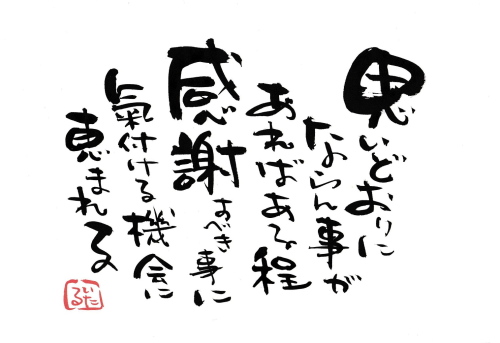 思いどおりに
ならん事が
あればある程
感謝すべき事に
氣付ける機会に
恵まれる